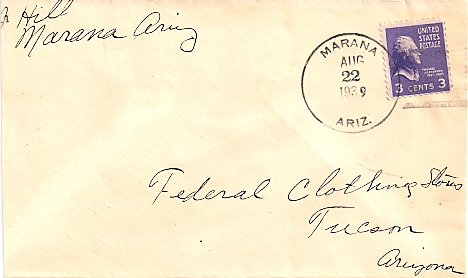 Hill
Marana Ariz
MARANA
AUG
22
1939
ARIZ.
UNITED
STATES
POSTAGE
3 CENTS 3
Federal Clothing Stores
Tucson
Arizona